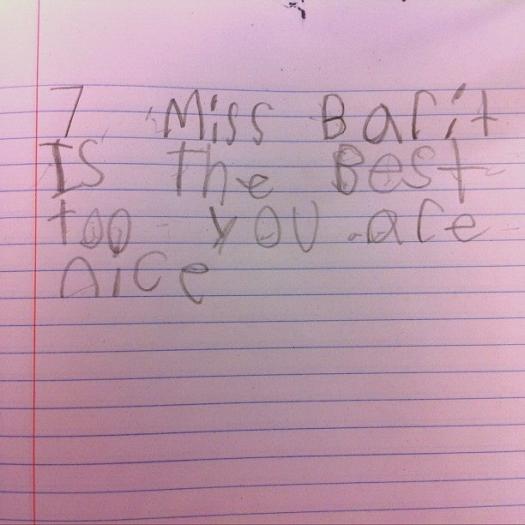 7 Miss Barit
Is the Best
too you are
nice